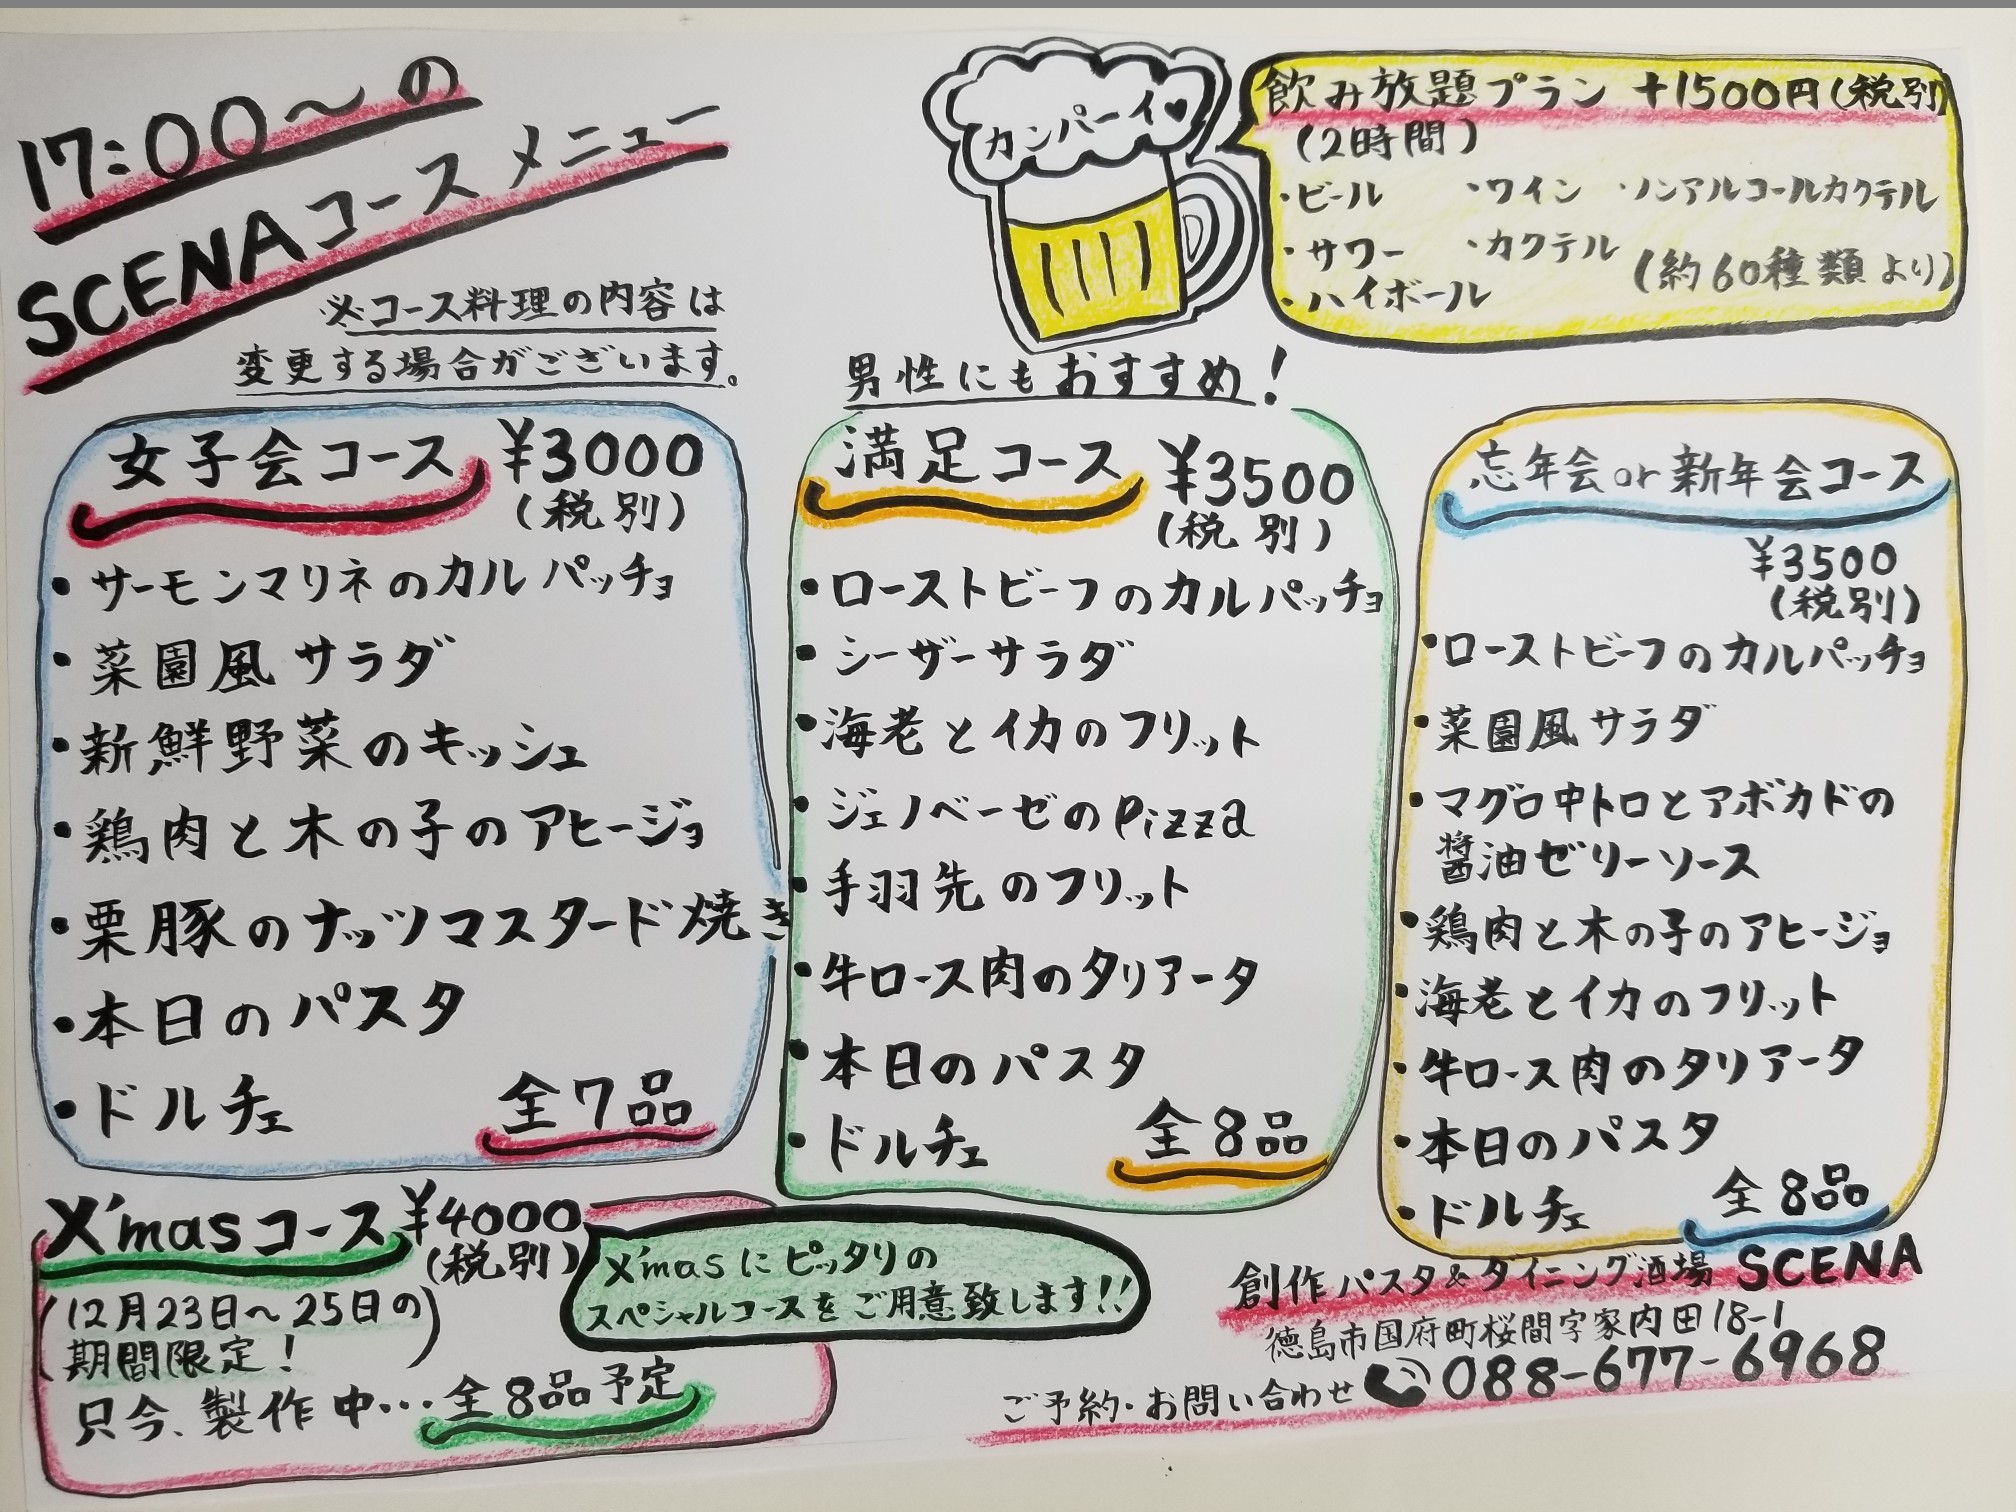 17:00〜の
SCENAコース メニュー
※コース料理の内容は
変更する場合がございます。
カンパーイ♥
飲み放題プラン +1500円(税別)
(2時間)
・ビール ・ワイン ・ノンアルコールカクテル
・サワー ・カクテル
・ハイボール (約60種類より)
女子会コース ¥3000
(税別)
・サーモンマリネのカルパッチョ
・菜園風サラダ
・新鮮野菜のキッシュ
・鶏肉と木の子のアヒージョ
・栗豚のナッツマスタード焼き
・本日のパスタ
・ドルチェ 全7品
男性にもおすすめ!
満足コース ¥3500
(税別)
・ローストビーフのカルパッチョ
・シーザーサラダ
・海老とイカのフリット
・ジェノベーゼのPizza
・手羽先のフリット
・牛ロース肉のタリアータ
・本日のパスタ
・ドルチェ 全8品
忘年会or新年会コース
¥3500
(税別)
・ローストビーフのカルパッチョ
・菜園風サラダ
・マグロ中トロとアボカドの
醤油ゼリーソース
・鶏肉と木の子のアヒージョ
・海老とイカのフリット
・牛ロース肉のタリアータ
・本日のパスタ
・ドルチェ 全8品
X'masコース ¥4000
(税別)
(12月23日〜25日の
期間限定!)
只今、製作中…全8品予定
X'masにピッタリの
スペシャルコースをご用意致します!!
創作パスタ&ダイニング酒場 SCENA
徳島市国府町桜間字家内田18-1
ご予約・お問い合わせ 088-677-6968